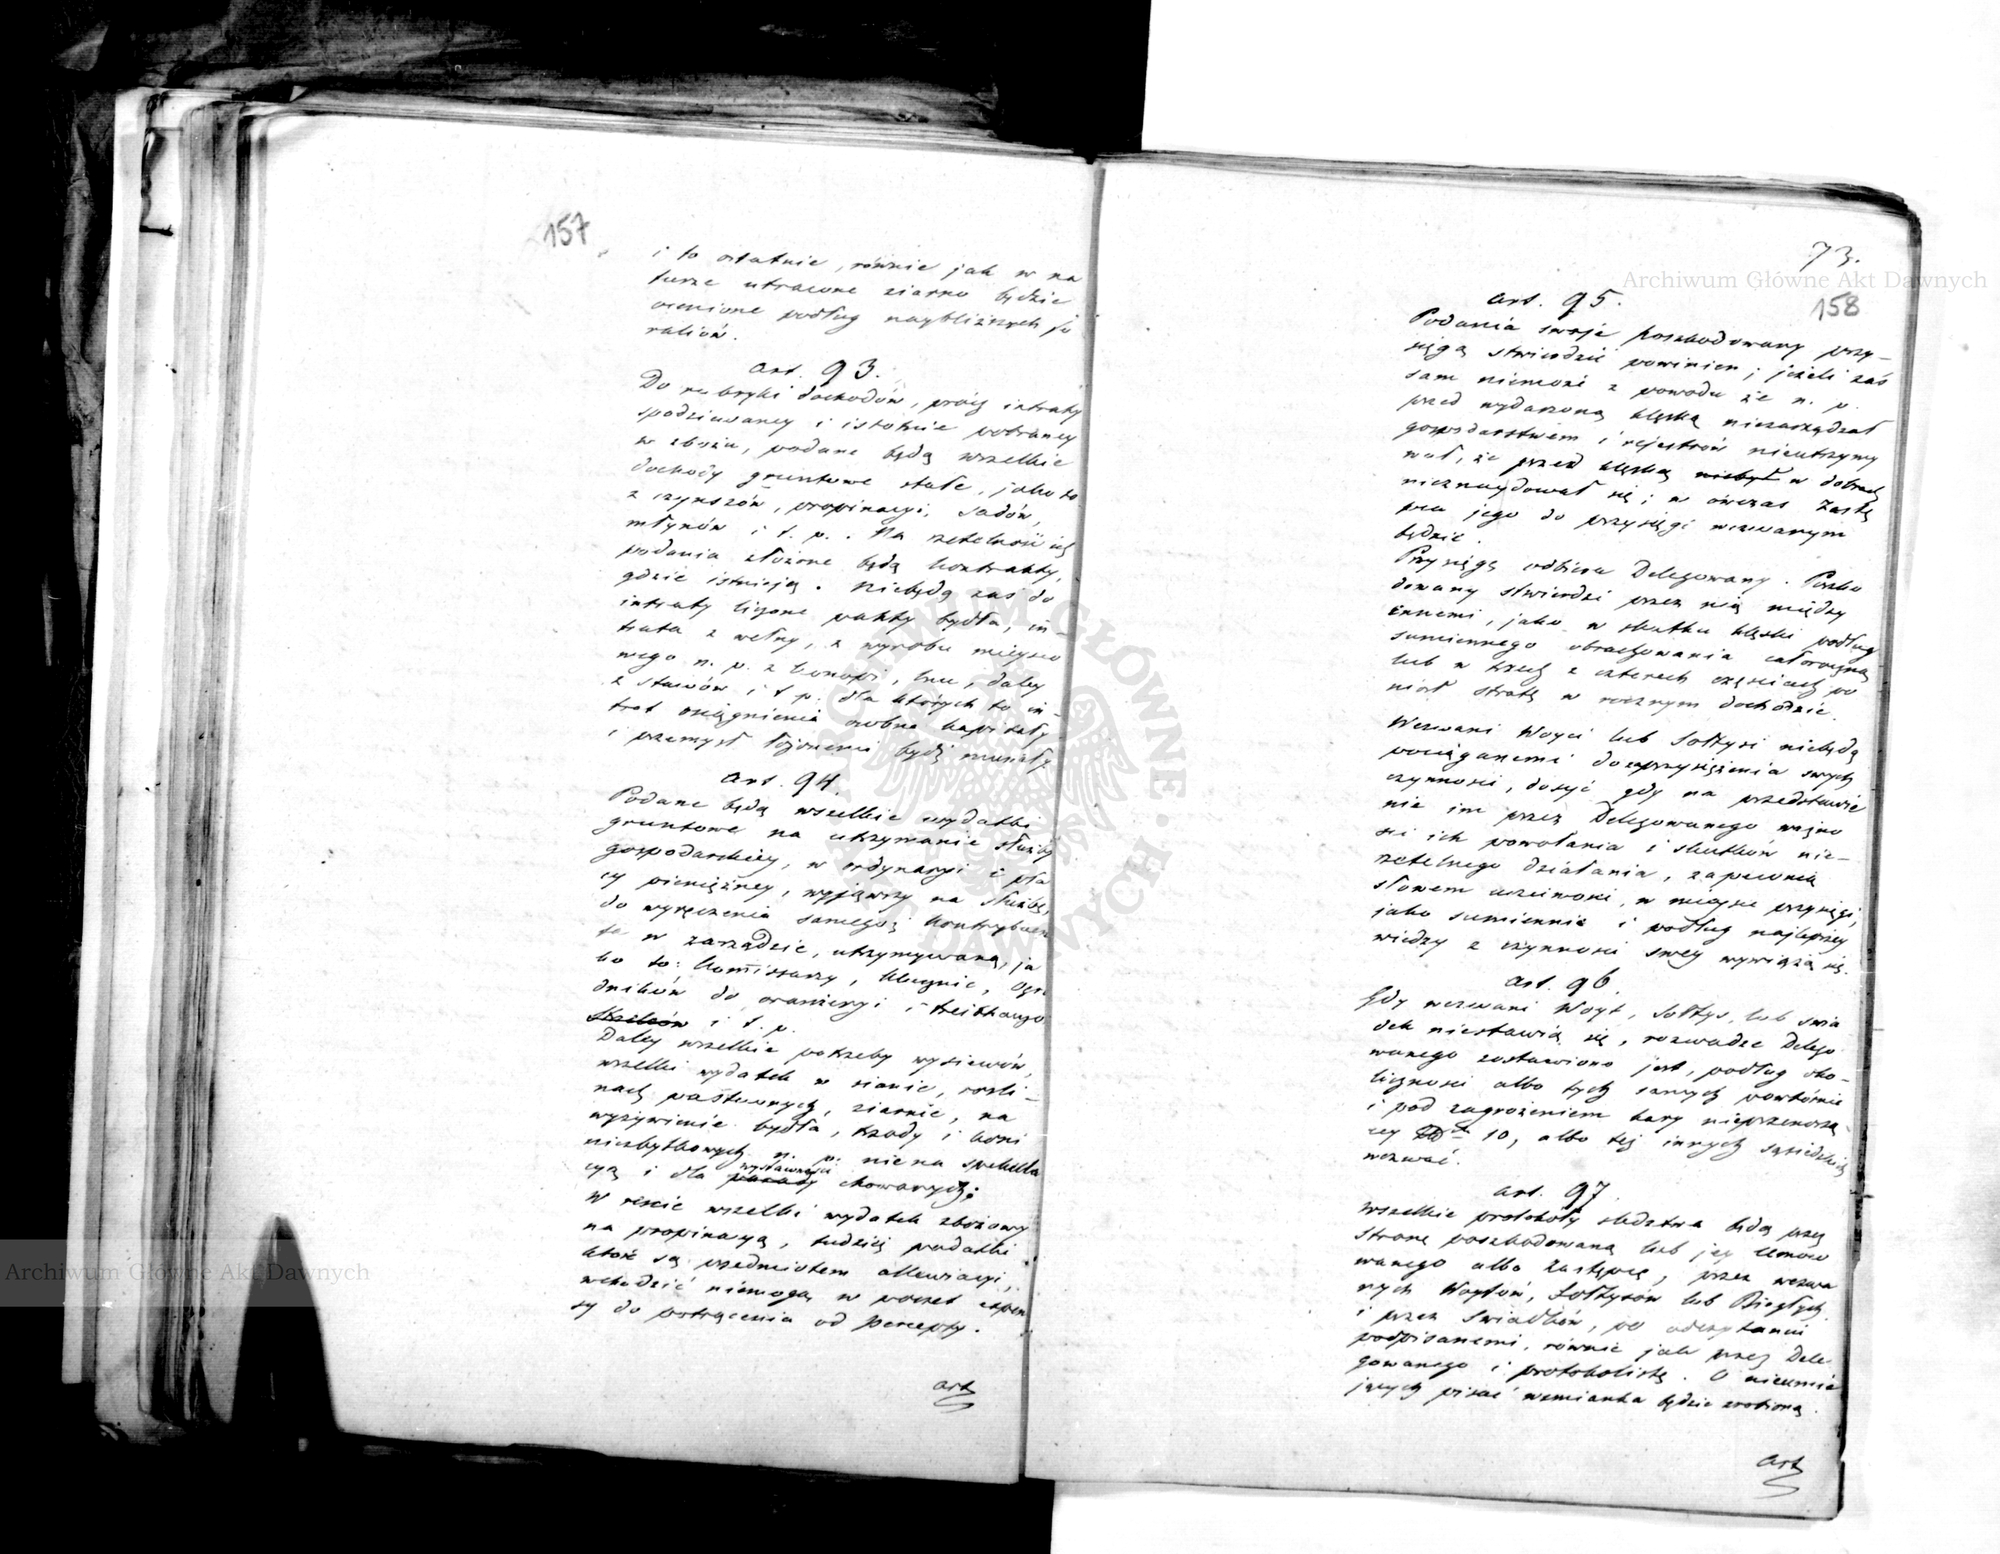 157
i to ostatnie, równie jak w na
turze utracone ziarno będzie
ocenione podług naybliższych fo
raliów.
art. 93.
Do rubryki dochodów, prócz intraty
spodziewaney i istotnie pobraney
w zbożu, podane będą wszelkie
dochody gruntowe stałe, jako to
z czynszów, propinacyi, sadów,
młynów i t. p. Na rzetelność ich
podania złożone będą kontrakty,
gdzie istnieją. Niebędą zaś do
intraty liczone pakty bydła, in-
trata z wełny, z wyrobu mieysco
wego n. p. z konopi, lnu, daley
z stawów i t. p. dla których to in-
trat osiągnienia osobne kapitały
i przemysł łożonemi bydź musiały.
art. 94.
Podane będą wszelkie wydatki
gruntowe na utrzymanie służby
gospodarskiey, w ordynaryi i pła
cy pieniężney, wyjąwszy na służbę,
do wyręczenia samegoż kontrybuen
ta w zarządzie, utrzymywaną, ja
ko to: Kommissarzy, klucznic, Ogro
dników do oranżeryi i treibhauzu
Strzelców i t. p.
Daley wszelkie potrzeby wysiewów,
wszelki wydatek w sianie, rośli-
nach pastewnych, ziarnie, na
wyżywienie bydła, trzody i koni
niezbytkowych n. p. nie na spekula
wystawności
cyą i dla parady chowanych;
W reście wszelki wydatek zbożowy
na propinacyą, tudzież podatki
które są przedmiotem allewiacyi,
wchodzić niemogą w poczet expen
sy do potrącenia od percepty.
art
73.
158
art. 95.
Podania swoje poszkodowany przy-
sięgą stwierdzić powinien; jeżeli zaś
sam niemoże z powodu że n. p.
przed wydarzoną klęską niezarządzał
gospodarstwem i rejestrów nieutrzymy
wał, że przed klęską niebył w dobrach
nieznaydował się; w ówczas Zastę
pca jego do przysięgi wezwanym
będzie.
Przysięgę odbiera Delegowany. Poszko
dowany stwierdzi przez nią między
innemi, jako w skutku klęski podług
sumiennego obrachowania całoroczną
lub w trzech z czterech częściach po
niósł stratę w rocznym dochodzie.
Wezwani Woyci lub Sołtysi niebędą
pociąganemi do zaprzysiężenia swych
czynności, dosyć gdy na przedstawie
nie im przez Delegowanego ważno
ści ich powołania i skutków nie-
rzetelnego działania, zapewnią
słowem uczciwości, w mieysce przysięgi,
jako sumiennie i podług najlepszey
wiedzy z czynności swey wywiążą się.
art. 96.
Gdy wezwani Woyt, Sołtys, lub świa
dek niestawią się, rozwadze Delego
wanego zostawiono jest, podług oko-
liczności albo tych samych powtórnie
i pod zagrożeniem kary nieprzenoszą-
cey 10, albo też innych sąsiedzkich
wezwać.
art. 97.
Wszelkie protokoły śledztwa będą przez
stronę poszkodowaną lub jey Umoco
wanego albo Zastępcę, przez wezwa
nych Woytów, Sołtysów lub Biegłych
i przez Świadków, po odczytaniu
podpisanemi, równie jak przez Dele
gowanego i protokolistę. O nieumie
jących pisać wzmianka będzie zrobioną.
art
Archiwum Główne Akt Dawnych
Archiwum Główne Akt Dawnych
ARCHIWUM GŁÓWNE AKT DAWNYCH